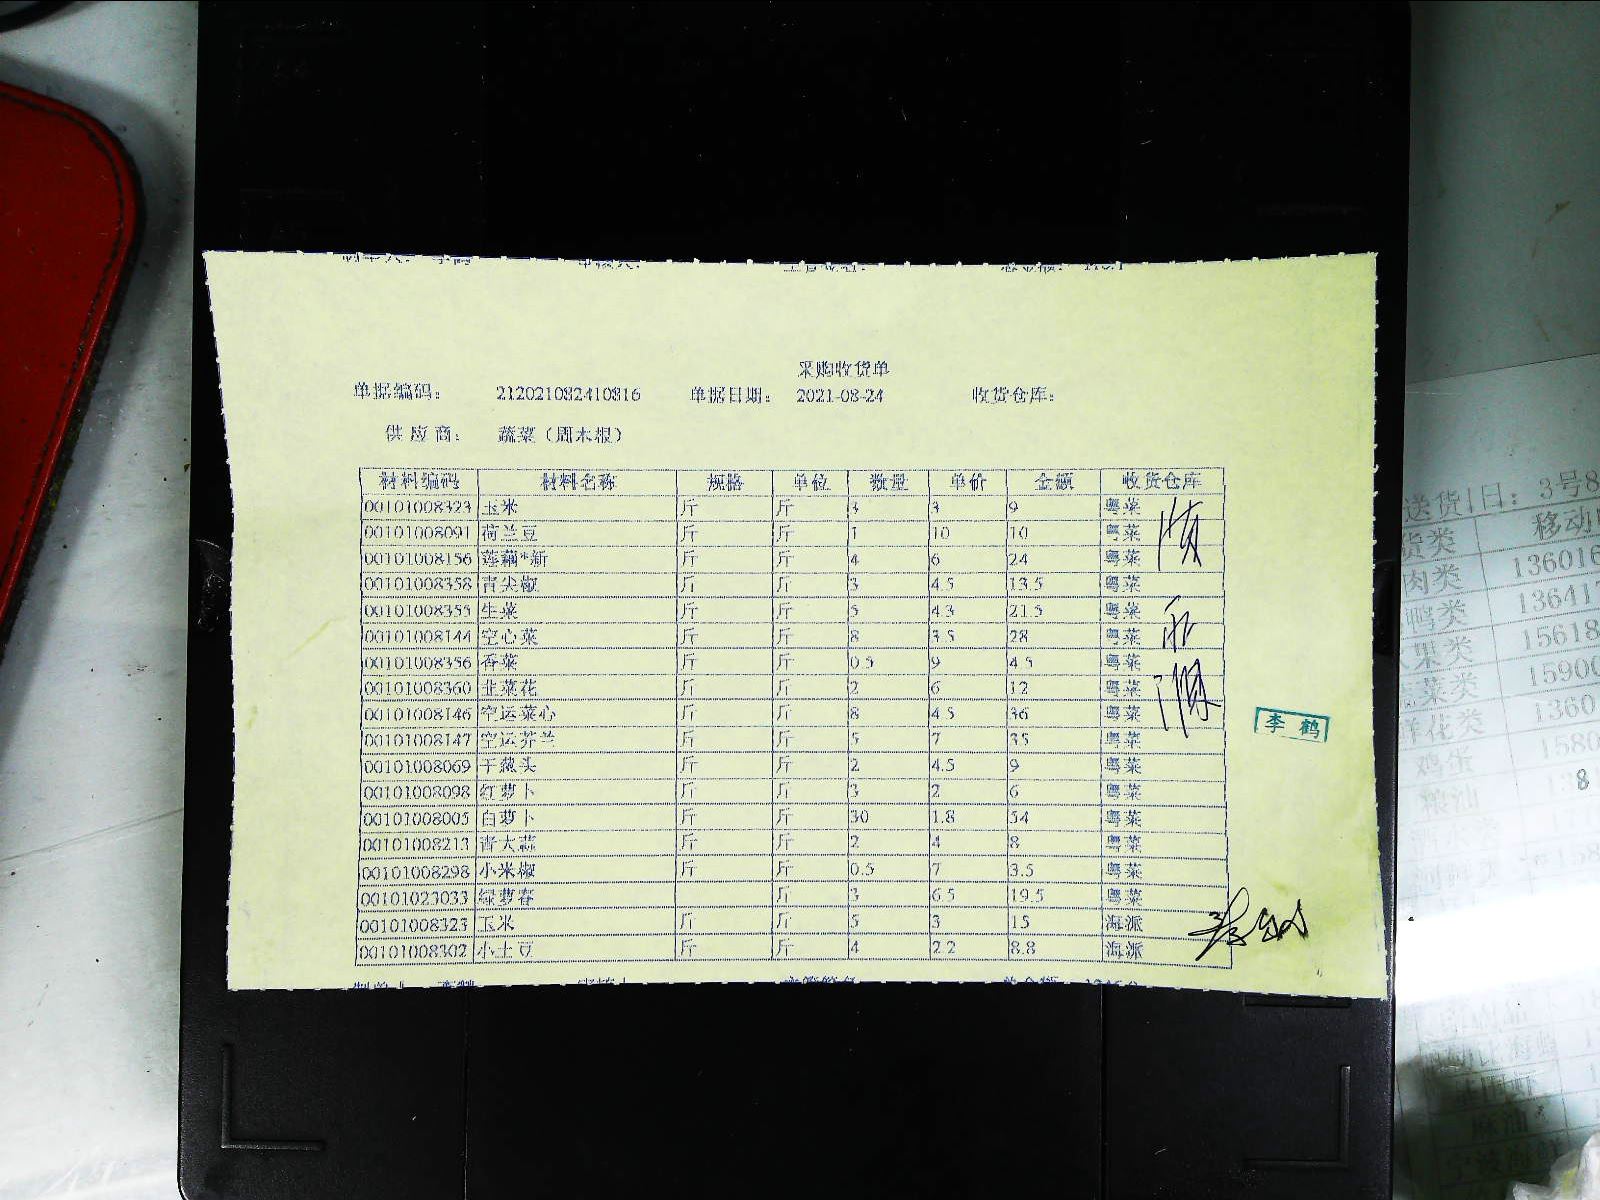 采购收货单
单据编码： 212021082410816 单据日期： 2021-08-24 收货仓库：
供应商： 蔬菜（周木根）
材料编码 材料名称 规格 单位 数量 单价 金额 收货仓库
00101008323 玉米 斤 斤 3 3 9 粤菜
00101008091 荷兰豆 斤 斤 1 10 10 粤菜
00101008156 莲藕*新 斤 斤 4 6 24 粤菜
00101008358 青尖椒 斤 斤 3 4.5 13.5 粤菜
00101008355 生菜 斤 斤 5 4.3 21.5 粤菜
00101008144 空心菜 斤 斤 8 3.5 28 粤菜
00101008356 香菜 斤 斤 0.5 9 4.5 粤菜
00101008360 韭菜花 斤 斤 2 6 12 粤菜
00101008146 空运菜心 斤 斤 8 4.5 36 粤菜
00101008147 空运芥兰 斤 斤 5 7 35 粤菜
00101008069 干葱头 斤 斤 2 4.5 9 粤菜
00101008098 红萝卜 斤 斤 3 2 6 粤菜
00101008005 白萝卜 斤 斤 30 1.8 54 粤菜
00101008213 青大蒜 斤 斤 2 4 8 粤菜
00101008298 小米椒 斤 斤 0.5 7 3.5 粤菜
00101023033 绿萝春 斤 3 6.5 19.5 粤菜
00101008323 玉米 斤 斤 5 3 15 海派
00101008302 小土豆 斤 斤 4 2.2 8.8 海派
李鹤
送货1日：3号8
货类 移动
肉类 13601
鸭类 13641
果类 15618
菜类 1590
鲜花类 1360
鸡蛋 1580
8
麻油